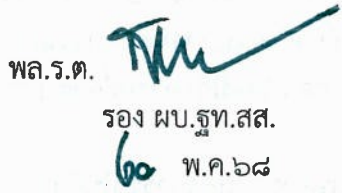 พล.ร.ต.
รอง ผบ.ฐท.สส.
๒๐ พ.ค.๖๘